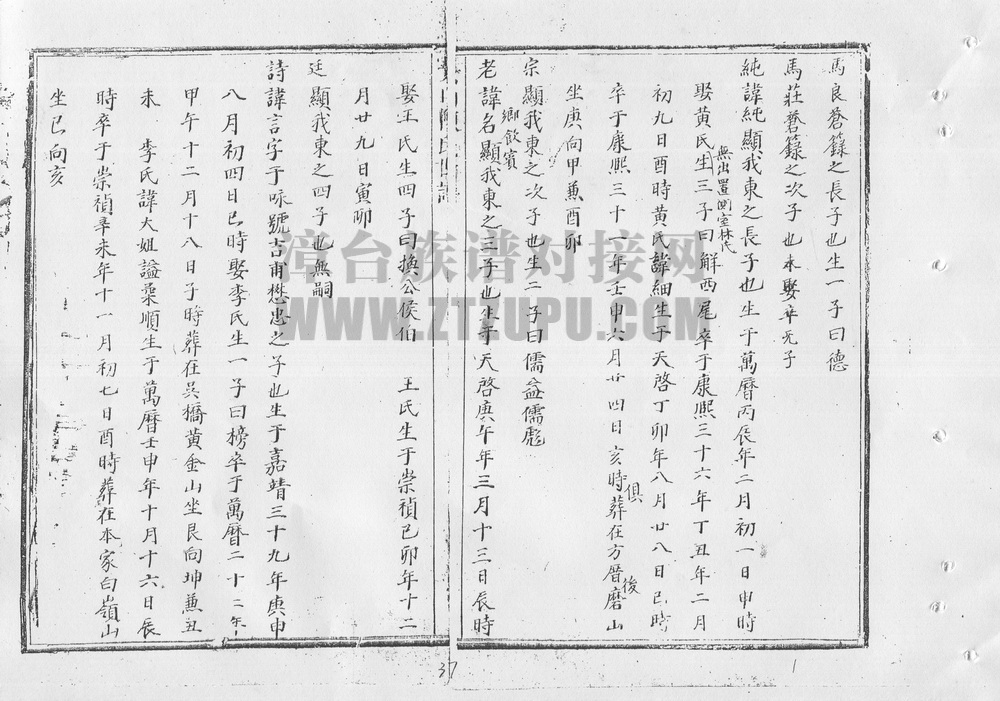 馬良蒼籙之長子也生一子曰德
馬莊蒼籙之次子也未娶卒无子
純諱純顯我東之長子也生于萬曆丙辰年二月初一日申時
娶黃氏生三子曰解西尾卒于康熙三十六年丁丑年二月
無出置側室林氏
初九日酉時黃氏諱細生于天啓丁卯年八月廿八日巳時
卒于康熙三十一年壬申六月廿四日亥時俱葬在方厝磨後山
坐庚向甲兼酉卯
宗顯我東之次子也生二子曰儒益儒彪
鄉飲賓
老諱名顯我東之三子也生于天啓庚午年三月十三日辰時
娶王氏生四子曰換公侯伯 王氏生于崇禎己卯年十二
月廿九日寅卯
廷顯我東之四子也無嗣
詩諱言字于咏號古甫懋忠之子也生于嘉靖三十九年庚申
八月初四日巳時娶李氏生一子曰榜卒于萬曆二十二年
甲午十二月十八日子時葬在吳橋黃金山坐艮向坤兼丑
未 李氏諱大姐謚柔順生于萬曆壬申年十月十六日辰
時卒于崇禎辛未年十一月初七日酉時葬在本家白嶺山
坐巳向亥
漳台族谱对接网
WWW.ZTZUPU.COM
37
1